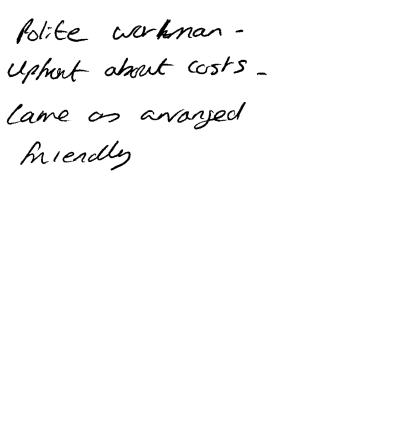 Polite workman -
Upfront about costs -
Came as arranged
friendly